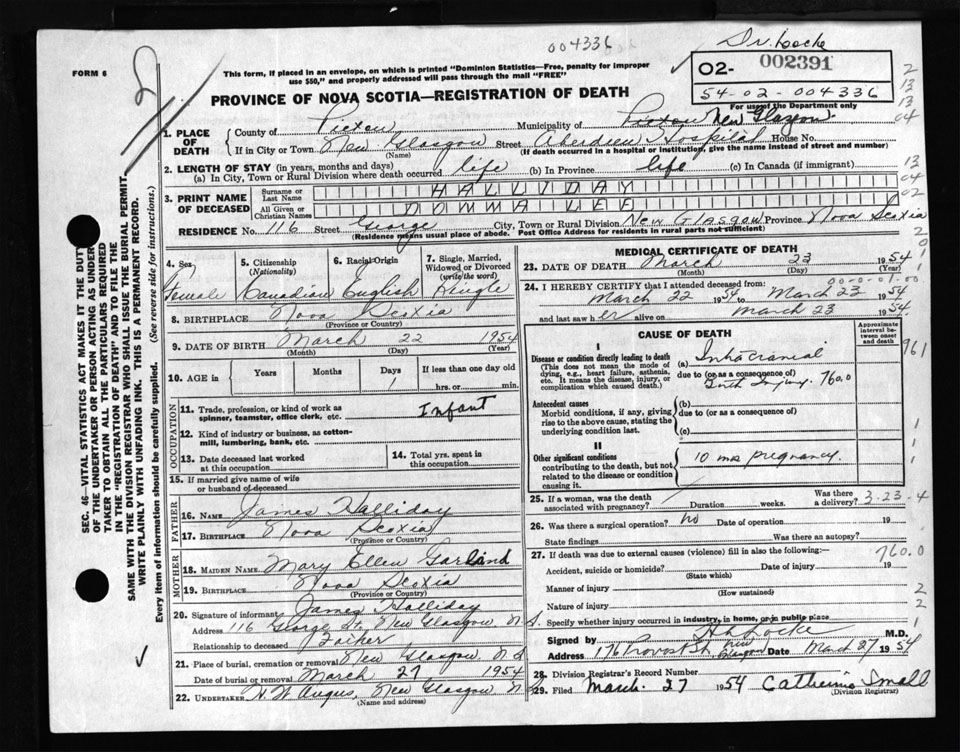 004336
Dr. Locke
FORM 6
This form, if placed in an envelope, on which is printed "Dominion Statistics—Free, penalty for improper
use $50," and properly addressed will pass through the mail "FREE"
02- 002391
54-02-004336
For use of the Department only
PROVINCE OF NOVA SCOTIA—REGISTRATION OF DEATH
1. PLACE OF DEATH
County of Pictou Municipality of Pictou New Glasgow
If in City or Town New Glasgow Street Aberdeen Hospital House No.
(Name) (If death occurred in a hospital or institution, give the name instead of street and number)
2. LENGTH OF STAY (in years, months and days)
(a) In City, Town or Rural Division where death occurred life (b) In Province life (c) In Canada (if immigrant)
3. PRINT NAME OF DECEASED
Surname or Last Name HALLIDAY
All Given or Christian Names DONNA LEE
RESIDENCE No. 116 Street George City, Town or Rural Division New Glasgow Province Nova Scotia
(Residence means usual place of abode. Post Office Address for residents in rural parts not sufficient)
4. Sex Female
5. Citizenship (Nationality) Canadian
6. Racial Origin English
7. Single, Married, Widowed or Divorced (write the word) Single
8. BIRTHPLACE Nova Scotia
(Province or Country)
9. DATE OF BIRTH March 22 1954
(Month) (Day) (Year)
10. AGE in Years Months Days 1 If less than one day old hrs. or min.
OCCUPATION
11. Trade, profession, or kind of work as spinner, teamster, office clerk, etc. Infant
12. Kind of industry or business, as cotton-mill, lumbering, bank, etc.
13. Date deceased last worked at this occupation
14. Total yrs. spent in this occupation
15. If married give name of wife or husband of deceased
FATHER
16. NAME James Halliday
17. BIRTHPLACE Nova Scotia
(Province or Country)
MOTHER
18. MAIDEN NAME Mary Ellen Garland
19. BIRTHPLACE Nova Scotia
(Province or Country)
20. Signature of informant James Halliday
Address 116 George St., New Glasgow N S
Relationship to deceased Father
21. Place of burial, cremation or removal New Glasgow, N S
Date of burial or removal March 27 1954
22. UNDERTAKER H. W. Angus, New Glasgow N S
(Name and address)
MEDICAL CERTIFICATE OF DEATH
23. DATE OF DEATH March 23 1954
(Month) (Day) (Year)
24. I HEREBY CERTIFY that I attended deceased from:
March 22 1954 to March 23 1954
and last saw her alive on March 23 1954
CAUSE OF DEATH
Approximate interval between onset and death
I
Disease or condition directly leading to death
(This does not mean the mode of dying, e.g., heart failure, asthenia, etc. It means the disease, injury, or complication which caused death.)
(a) Intracranial
due to (or as a consequence of)
Birth Injury. 760.0
Antecedent causes
Morbid conditions, if any, giving rise to the above cause, stating the underlying condition last.
(b)
due to (or as a consequence of)
(c)
II
Other significant conditions
contributing to the death, but not related to the disease or condition causing it.
10 mos pregnancy.
25. If a woman, was the death associated with pregnancy? Duration weeks. Was there a delivery? 3-23-4
26. Was there a surgical operation? no Date of operation 19
State findings Was there an autopsy?
27. If death was due to external causes (violence) fill in also the following:—
760.0
Accident, suicide or homicide? Date of injury 19
(State which)
Manner of injury
(How sustained)
Nature of injury
Specify whether injury occurred in industry, in home, or in public place
Signed by H. A. Locke M.D.
Address 176 Provost St, New Glasgow Date March 27 1954
28. Division Registrar's Record Number
29. Filed March. 27 1954 Catherine Small
(Division Registrar)
SEC. 46—VITAL STATISTICS ACT MAKES IT THE DUTY
OF THE UNDERTAKER OR PERSON ACTING AS UNDER-
TAKER TO OBTAIN ALL THE PARTICULARS REQUIRED
IN THE "REGISTRATION OF DEATH" AND TO FILE THE
SAME WITH THE DIVISION REGISTRAR WHO SHALL ISSUE THE BURIAL PERMIT.
WRITE PLAINLY WITH UNFADING INK. THIS IS A PERMANENT RECORD.
Every item of information should be carefully supplied. (See reverse side for instructions.)